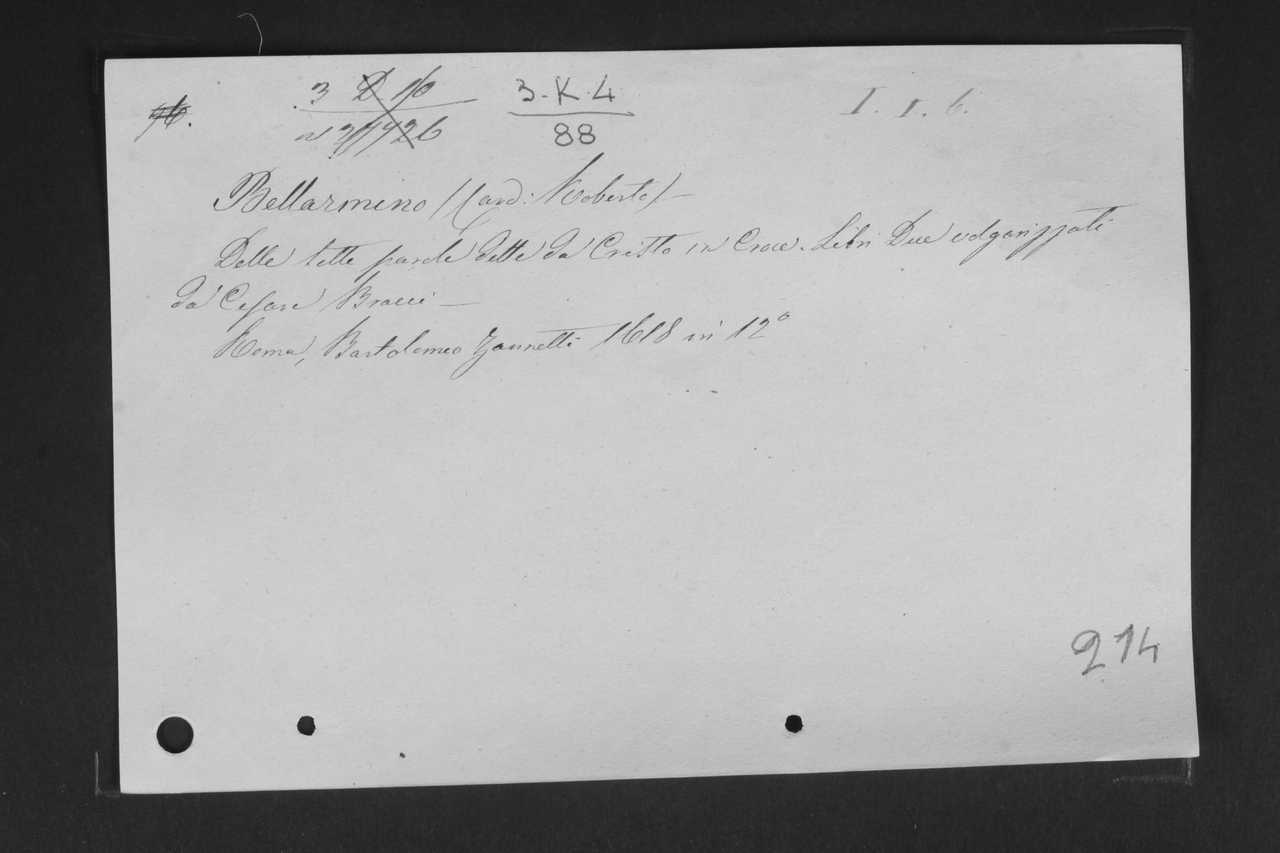 3 D 16
3-K-4
88
I. 1. 6.
Bellarmino /Card: Roberto/ —
Delle sette parole dette da Cristo in Croce. Libri Due volgarizzati
da Cesare Bracci —
Roma, Bartolomeo Zannetti 1618 in 12°
214